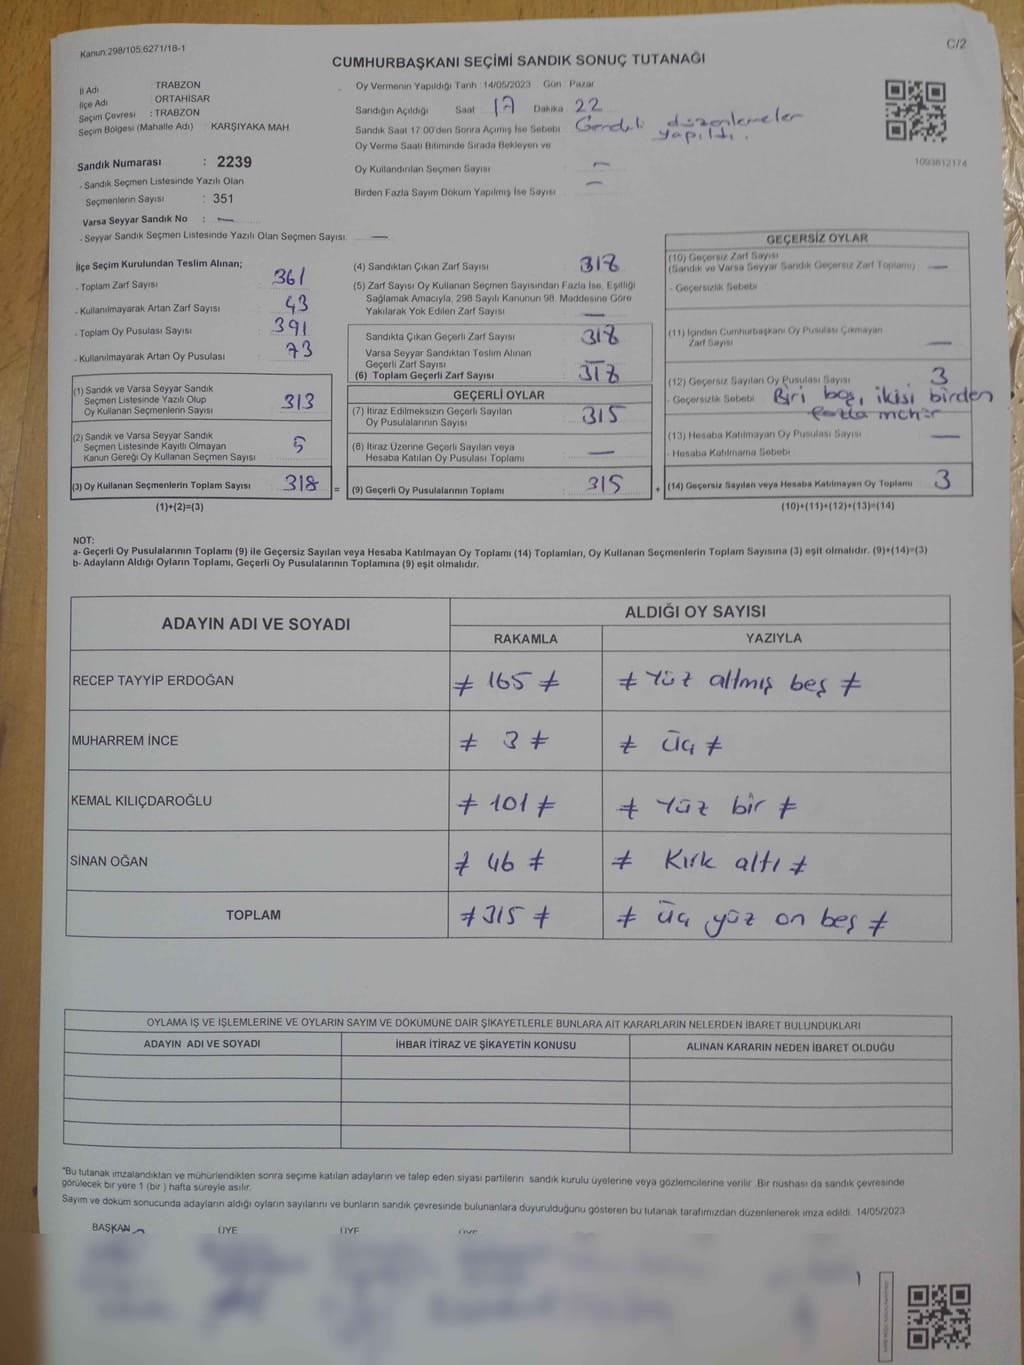 Kanun:298/105;6271/18-1
C/2
CUMHURBAŞKANI SEÇİMİ SANDIK SONUÇ TUTANAĞI
İl Adı TRABZON
İlçe Adı ORTAHİSAR
Seçim Çevresi : TRABZON
Seçim Bölgesi (Mahalle Adı) : KARŞIYAKA MAH
Sandık Numarası : 2239
- Sandık Seçmen Listesinde Yazılı Olan
Seçmenlerin Sayısı : 351
Varsa Seyyar Sandık No : —
- Seyyar Sandık Seçmen Listesinde Yazılı Olan Seçmen Sayısı: —
Oy Vermenin Yapıldığı Tarih : 14/05/2023 Gün Pazar
Sandığın Açıldığı Saat 17 Dakika 22
Sandık Saat 17:00'den Sonra Açılmış İse Sebebi Gerekli düzenlemeler
yapıldı.
Oy Verme Saati Bitiminde Sırada Bekleyen ve
Oy Kullandırılan Seçmen Sayısı —
Birden Fazla Sayım Döküm Yapılmış İse Sayısı —
1093812174
İlçe Seçim Kurulundan Teslim Alınan;
- Toplam Zarf Sayısı : 361
- Kullanılmayarak Artan Zarf Sayısı : 43
- Toplam Oy Pusulası Sayısı : 391
- Kullanılmayarak Artan Oy Pusulası : 73
(1) Sandık ve Varsa Seyyar Sandık
Seçmen Listesinde Yazılı Olup
Oy Kullanan Seçmenlerin Sayısı : 313
(2) Sandık ve Varsa Seyyar Sandık
Seçmen Listesinde Kayıtlı Olmayan
Kanun Gereği Oy Kullanan Seçmen Sayısı : 5
(3) Oy Kullanan Seçmenlerin Toplam Sayısı : 318 =
(1)+(2)=(3)
(4) Sandıktan Çıkan Zarf Sayısı : 318
(5) Zarf Sayısı Oy Kullanan Seçmen Sayısından Fazla İse, Eşitliği
Sağlamak Amacıyla, 298 Sayılı Kanunun 98. Maddesine Göre
Yakılarak Yok Edilen Zarf Sayısı : —
Sandıkta Çıkan Geçerli Zarf Sayısı : 318
Varsa Seyyar Sandıktan Teslim Alınan
Geçerli Zarf Sayısı : —
(6) Toplam Geçerli Zarf Sayısı : 318
GEÇERLİ OYLAR
(7) İtiraz Edilmeksizin Geçerli Sayılan
Oy Pusulalarının Sayısı : 315
(8) İtiraz Üzerine Geçerli Sayılan veya
Hesaba Katılan Oy Pusulası Toplamı : —
(9) Geçerli Oy Pusulalarının Toplamı : 315 +
GEÇERSİZ OYLAR
(10) Geçersiz Zarf Sayısı
(Sandık ve Varsa Seyyar Sandık Geçersiz Zarf Toplamı) —
- Geçersizlik Sebebi
(11) İçinden Cumhurbaşkanı Oy Pusulası Çıkmayan
Zarf Sayısı —
(12) Geçersiz Sayılan Oy Pusulası Sayısı 3
- Geçersizlik Sebebi Biri boş, ikisi birden
fazla mühür
(13) Hesaba Katılmayan Oy Pusulası Sayısı —
- Hesaba Katılmama Sebebi
(14) Geçersiz Sayılan veya Hesaba Katılmayan Oy Toplamı 3
(10)+(11)+(12)+(13)=(14)
NOT:
a- Geçerli Oy Pusulalarının Toplamı (9) ile Geçersiz Sayılan veya Hesaba Katılmayan Oy Toplamı (14) Toplamları, Oy Kullanan Seçmenlerin Toplam Sayısına (3) eşit olmalıdır. (9)+(14)=(3)
b- Adayların Aldığı Oyların Toplamı, Geçerli Oy Pusulalarının Toplamına (9) eşit olmalıdır.
ADAYIN ADI VE SOYADI
ALDIĞI OY SAYISI
RAKAMLA YAZIYLA
RECEP TAYYİP ERDOĞAN ≠ 165 ≠ ≠ Yüz altmış beş ≠
MUHARREM İNCE ≠ 3 ≠ ≠ Üç ≠
KEMAL KILIÇDAROĞLU ≠ 101 ≠ ≠ Yüz bir ≠
SİNAN OĞAN ≠ 46 ≠ ≠ Kırk altı ≠
TOPLAM ≠ 315 ≠ ≠ Üç yüz on beş ≠
OYLAMA İŞ VE İŞLEMLERİNE VE OYLARIN SAYIM VE DÖKÜMÜNE DAİR ŞİKAYETLERLE BUNLARA AİT KARARLARIN NELERDEN İBARET BULUNDUKLARI
ADAYIN ADI VE SOYADI İHBAR İTİRAZ VE ŞİKAYETİN KONUSU ALINAN KARARIN NEDEN İBARET OLDUĞU
"Bu tutanak imzalandıktan ve mühürlendikten sonra seçime katılan adayların ve talep eden siyasi partilerin sandık kurulu üyelerine veya gözlemcilerine verilir. Bir nüshası da sandık çevresinde
görülecek bir yere 1 (bir) hafta süreyle asılır.
Sayım ve döküm sonucunda adayların aldığı oyların sayılarını ve bunların sandık çevresinde bulunanlara duyurulduğunu gösteren bu tutanak tarafımızdan düzenlenerek imza edildi. 14/05/2023
BAŞKAN ÜYE ÜYE ÜYE